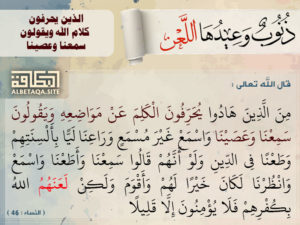 ذنوب وعيدها اللعن
الذين يحرفون
كلام الله ويقولون
سمعنا وعصينا
البطاقة
ALBETAQA.SITE
قال الله تعالى :
مِنَ الَّذِينَ هَادُوا يُحَرِّفُونَ الْكَلِمَ عَنْ مَوَاضِعِهِ وَيَقُولُونَ
سَمِعْنَا وَعَصَيْنَا وَاسْمَعْ غَيْرَ مُسْمَعٍ وَرَاعِنَا لَيًّا بِأَلْسِنَتِهِمْ
وَطَعْنًا فِي الدِّينِ وَلَوْ أَنَّهُمْ قَالُوا سَمِعْنَا وَأَطَعْنَا وَاسْمَعْ
وَانْظُرْنَا لَكَانَ خَيْرًا لَهُمْ وَأَقْوَمَ وَلَكِنْ لَعَنَهُمُ اللهُ
بِكُفْرِهِمْ فَلَا يُؤْمِنُونَ إِلَّا قَلِيلًا
( النساء : 46 )